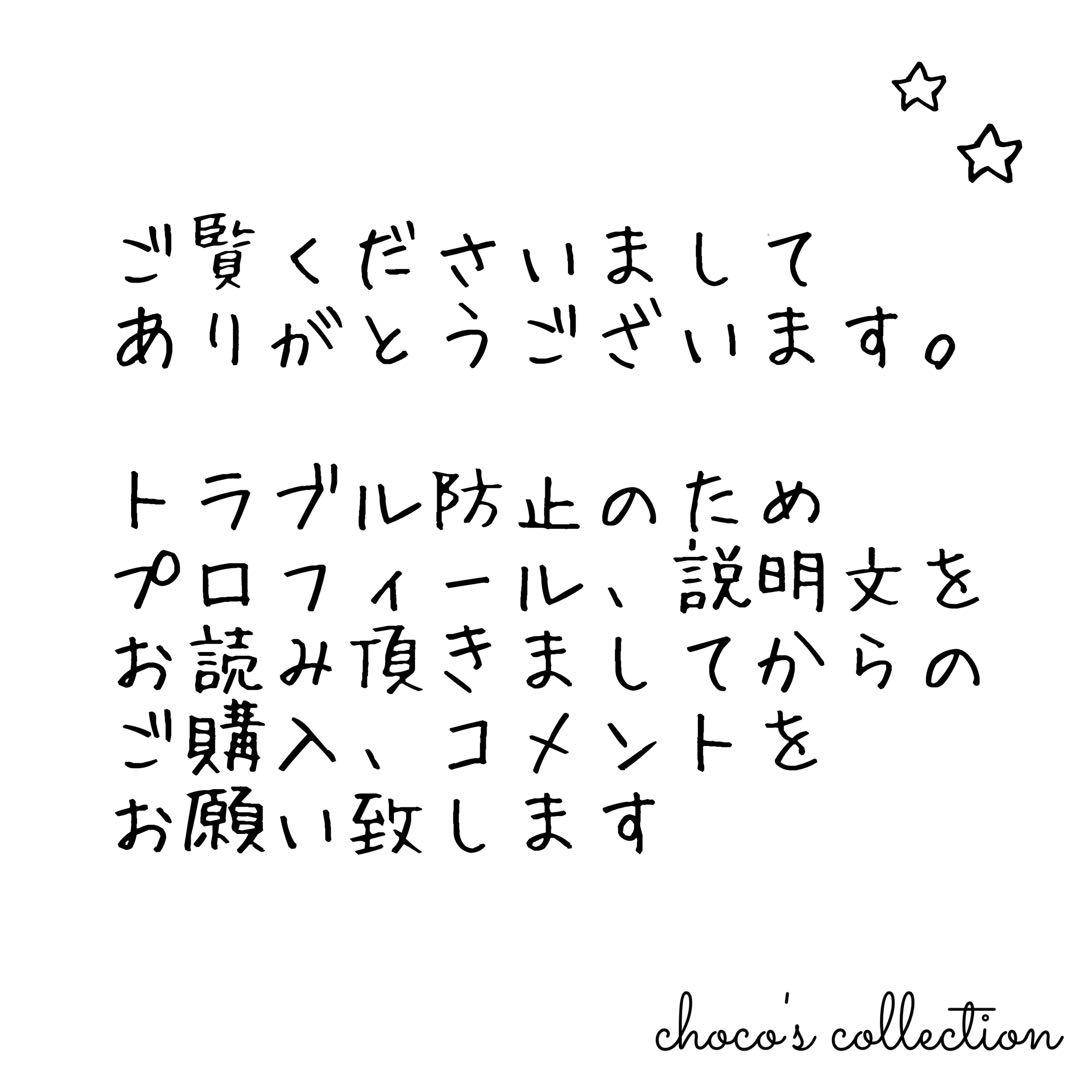 ご覧くださいまして
ありがとうございます。
トラブル防止のため
プロフィール、説明文を
お読み頂きましてからの
ご購入、コメントを
お願い致します
choco's collection